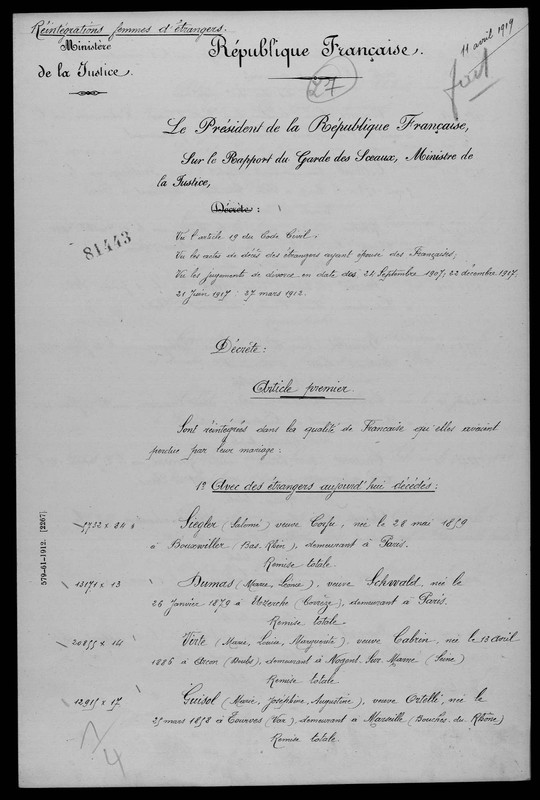 Réintégrations femmes d'étrangers.
11 avril 1919
Ministère
de la Justice.
République Française.
27
Le Président de la République Française,
Sur le Rapport du Garde des Sceaux, Ministre de
la Justice,
Décrète :
81443
Vu l'article 19 du Code Civil.
Vu les actes de décès des étrangers ayant épousé des Françaises;
Vu les jugements de divorce en date des 24 Septembre 1907, 22 décembre 1917
21 Juin 1917 27 mars 1912.
Décrète:
Article premier.
Sont réintégrées dans la qualité de Française qu'elles avaient
perdue par leur mariage:
1º Avec des étrangers aujourd'hui décédés:
579-61-1912. [2267]
5732 x 84 Siegler (Salomé) veuve Corfu, née le 28 mai 1859
à Bouxwiller (Bas-Rhin), demeurant à Paris.
Remise totale
13171 x 13 Dumas (Marie, Léonie), veuve Schwald, née le
26 Janvier 1879 à Uzerche (Corrèze), demeurant à Paris.
Remise totale
20855 x 14 Verte (Marie, Louise, Marguerite), veuve Cabrin, née le 13 avril
1886 à (Doubs), demeurant à Nogent-Sur-Marne (Seine)
Remise totale
12,915 x 17 Guisol (Marie, Joséphine, Augustine), veuve Ortelli, née le
25 mars 1858 à Tourves (Var), demeurant à Marseille (Bouches-du-Rhône)
Remise totale